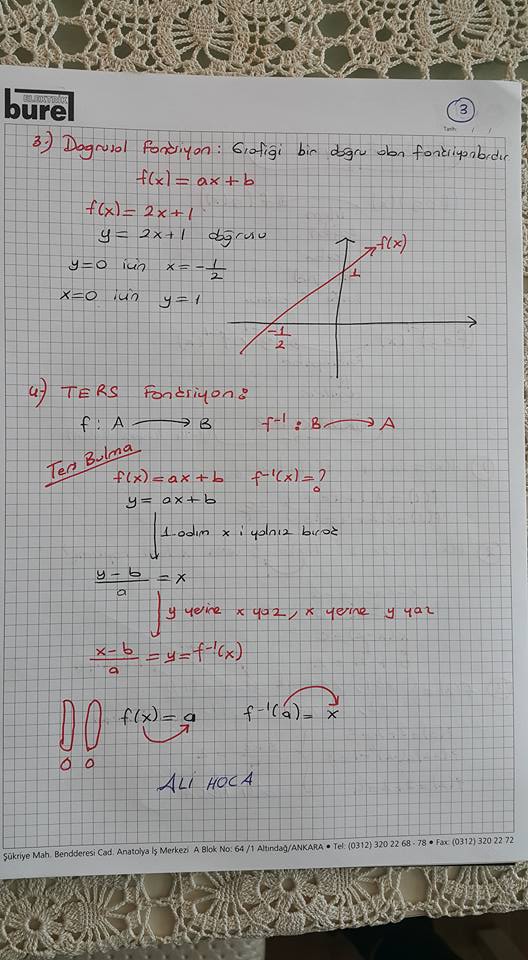 ELEKTRİK
burel
3
Tarih: / /
3-) Doğrusal Fonksiyon: Grafiği bir doğru olan fonksiyonlardır
f(x) = ax + b
f(x) = 2x + 1
y = 2x + 1 doğrusu
y = 0 için x = -1/2
x = 0 için y = 1
f(x)
1
-1/2
4-) TERS Fonksiyon:
f : A → B f⁻¹ : B → A
Ters Bulma
f(x) = ax + b f⁻¹(x) = ?
y = ax + b
1.adım x i yalnız bırak
(y - b)/a = x
y yerine x yaz, x yerine y yaz
(x - b)/a = y = f⁻¹(x)
!! f(x) = a f⁻¹(a) = x
ALİ HOCA
Şükriye Mah. Bendderesi Cad. Anatolya İş Merkezi A Blok No: 64 /1 Altındağ/ANKARA • Tel: (0312) 320 22 68 - 78 • Fax: (0312) 320 22 72